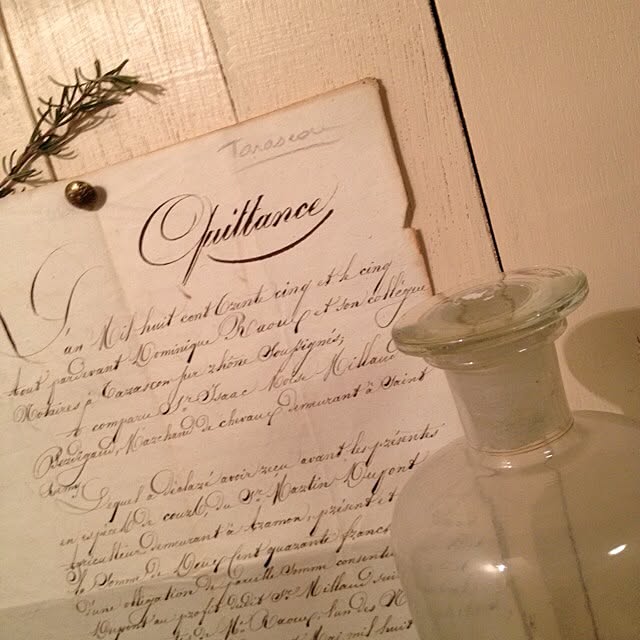 Tarascon
Quittance
L'an Mil huit cent trente cinq et le cinq
août pardevant Dominique Raoux et son collègue
Notaires à Tarascon sur rhône soussignés;
a comparu Sr. Isaac Moïse Millaud
Marchand de chevaux demeurant à Saint
Remy
Lequel a déclaré avoir reçu avant les présentes
en espèces de cours du Sr. Martin Dupont
agriculteur demeurant à Aramon, présent et
la somme de Deux Cent quarante francs
d'une obligation de pareille somme consentie
Dupont au profit dudit Sr. Millaud sui
Me. Raoux, l'un des N
Mai mil huit